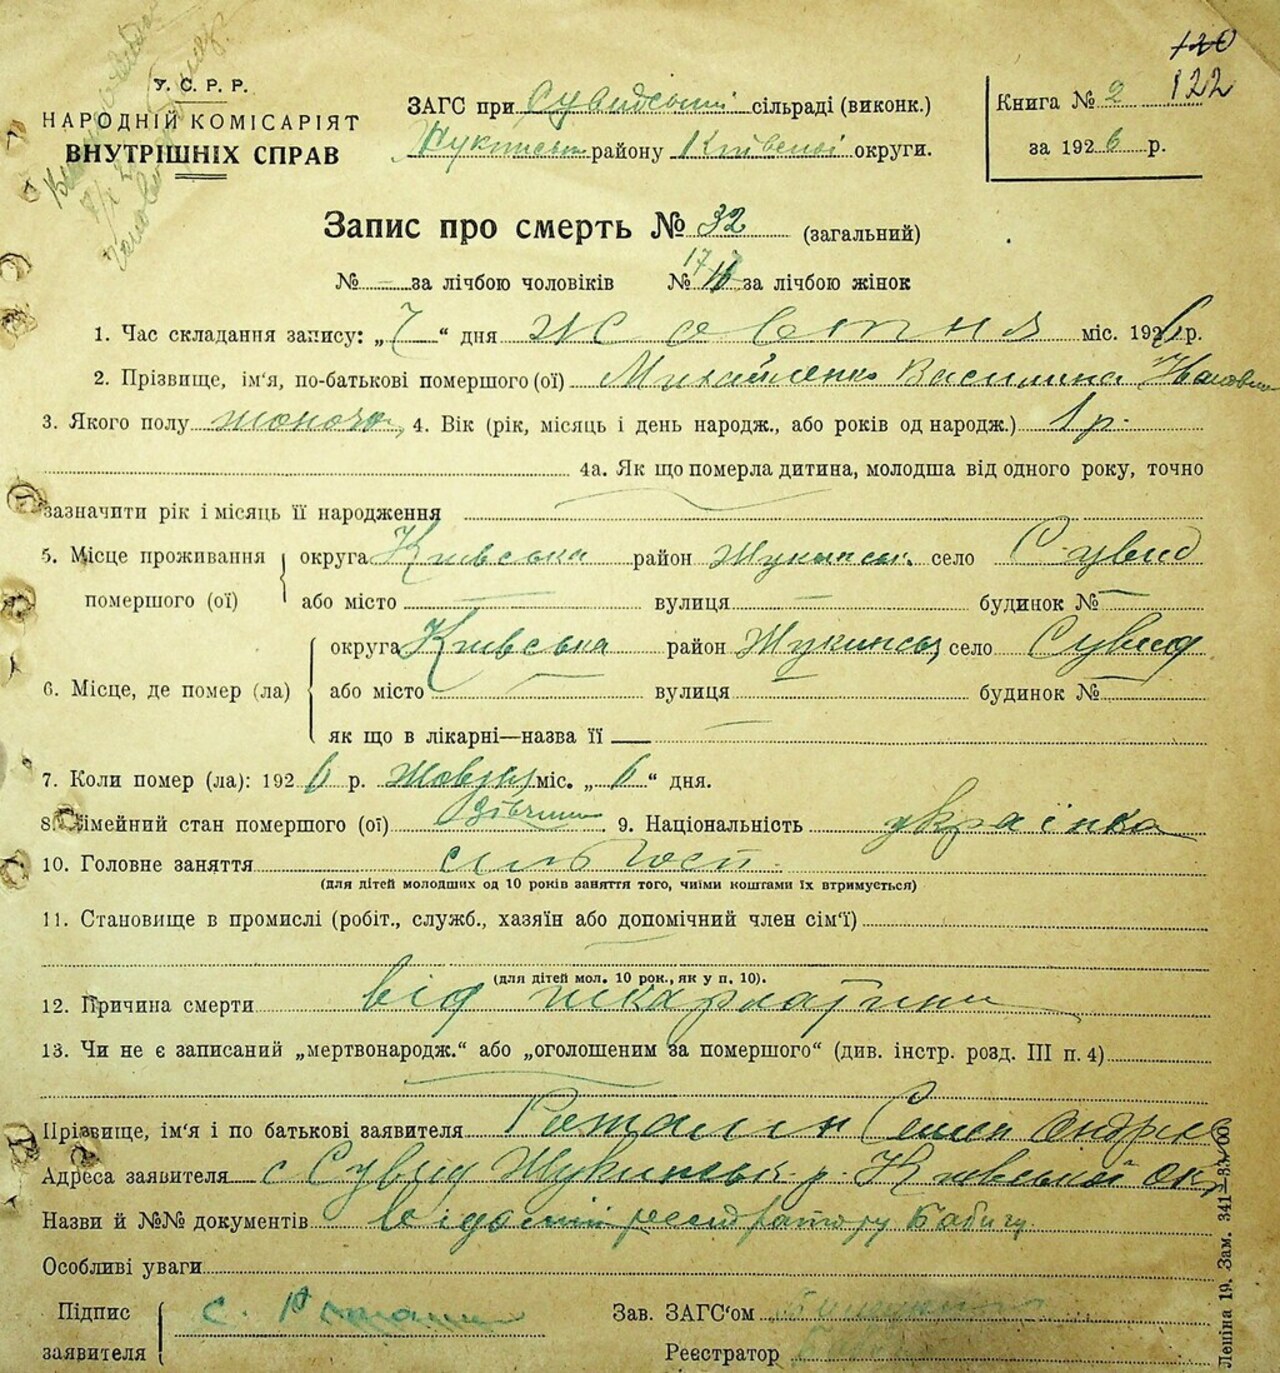 120
122
У. С. Р. Р.
НАРОДНІЙ КОМІСАРІЯТ
ВНУТРІШНІХ СПРАВ
ЗАГС при Сувидській сільраді (виконк.)
Жукинськ району Київської округи.
Книга № 2
за 1926 р.
Запис про смерть № 32 (загальний)
№ за лічбою чоловіків № 17 за лічбою жінок
1. Час складання запису: „7“ дня Жовтня міс. 1926 р.
2. Прізвище, ім'я, по-батькові помершого (ої) Михайленко Василина Ивановна
3. Якого полу жіноча, 4. Вік (рік, місяць і день народж., або років од народж.) 1 р.
4а. Як що померла дитина, молодша від одного року, точно
зазначити рік і місяць її народження
5. Місце проживання помершого (ої) округа Київська район Жукинськ. село Сувид
або місто — вулиця — будинок № —
6. Місце, де помер (ла) округа Київська район Жукинськ, село Сувид
або місто — вулиця — будинок № —
як що в лікарні—назва її —
7. Коли помер (ла): 1926 р. Жовтня міс. „6“ дня.
8. Сімейний стан помершого (ої) дівчина 9. Національність українка
10. Головне заняття сільгосп.
(для дітей молодших од 10 років заняття того, чиїми коштами їх втримується)
11. Становище в промислі (робіт., служб., хазяїн або допомічний член сім'ї)
(для дітей мол. 10 рок., як у п. 10).
12. Причина смерти від шкарлатини
13. Чи не є записаний „мертвонародж.“ або „оголошеним за помершого“ (див. інстр. розд. III п. 4)
Прізвище, ім'я і по батькові заявителя
Адреса заявителя с Сувид Жукинськ. р. Київської окр
Назви й №№ документів відомій реєстратору Бабичу
Особливі уваги
Підпис заявителя С.
Зав. ЗАГС'ом
Реєстратор
Леніна 19. Зам. 341